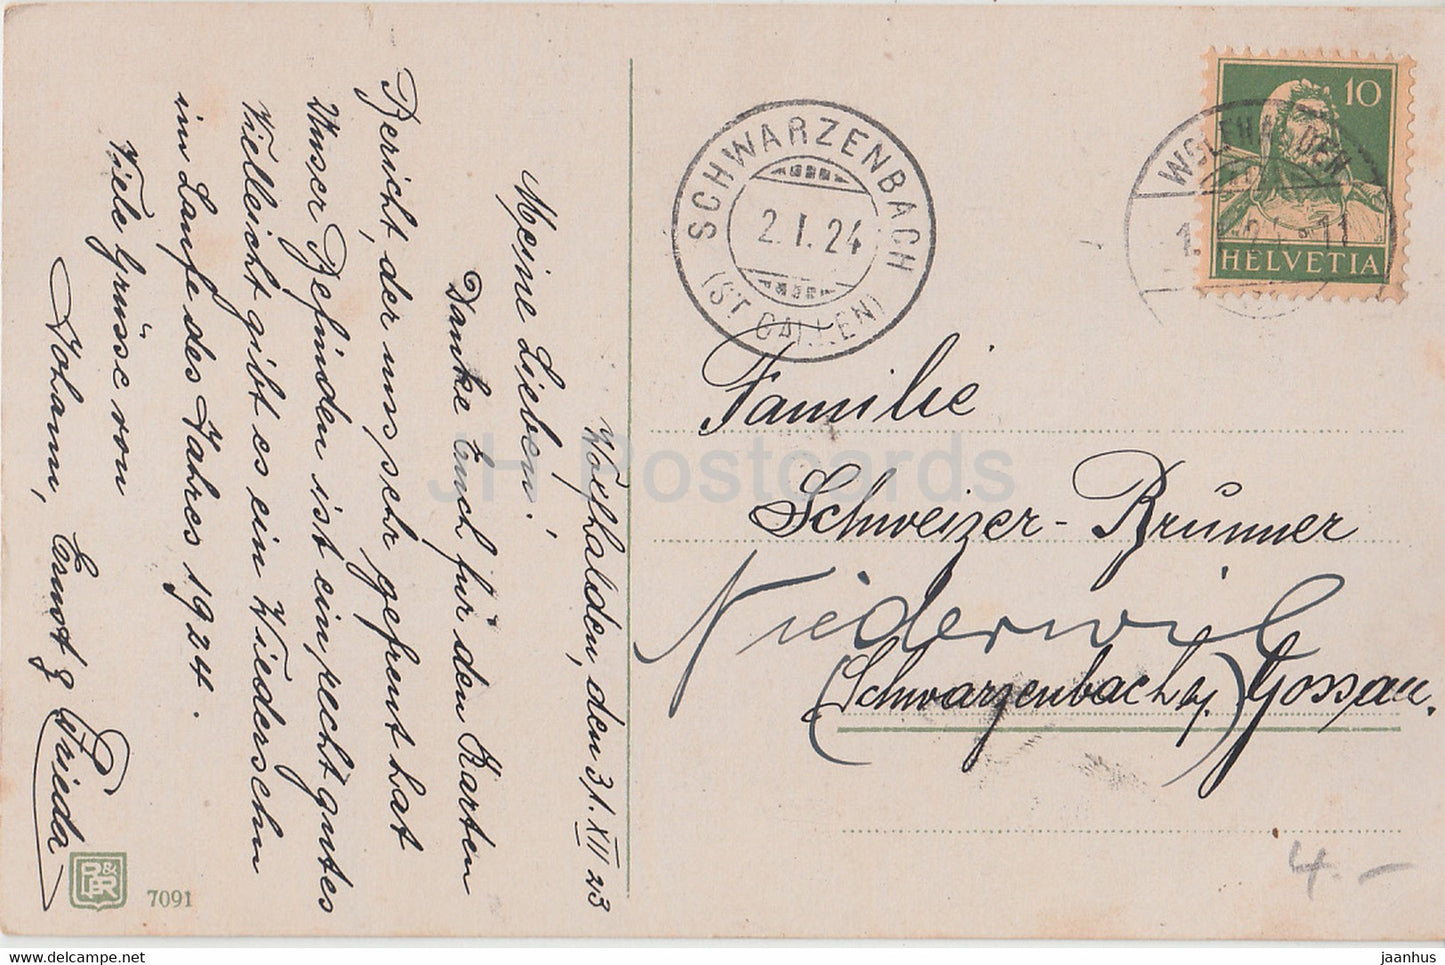 Wolfhalden, den 31. XII 23
Meine Lieben!
Danke Euch für den Karten
Bericht, der uns sehr gefreut hat
Unser Befinden ist ein recht gutes
Vielleicht gibt es ein Wiedersehn
im Laufe des Jahres 1924.
Viele Grüsse von
Johann, Ernst & Frieda
P & R
7091
SCHWARZENBACH
2.I.24
(ST GALLEN)
WOLFHALDEN
10
HELVETIA
Familie
Schweizer-Brunner
Niederwil
(Schwarzenbach) Gossau.
4.-
JH Postcards
jaanhus